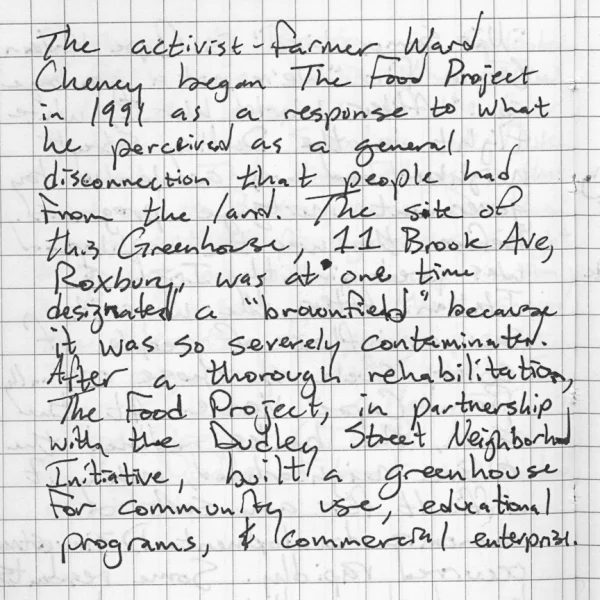 The activist-farmer Ward
Cheney began The Food Project
in 1991 as a response to what
he percieved as a general
disconnection that people had
from the land. The site of
this Greenhouse, 11 Brook Ave,
Roxbury, was at one time
designated a "brownfield" because
it was so severely contaminated.
After a thorough rehabilitation,
The Food Project, in partnership
with the Dudley Street Neighborhood
Initiative, built a greenhouse
for community use, educational
programs, & commercial enterprise.